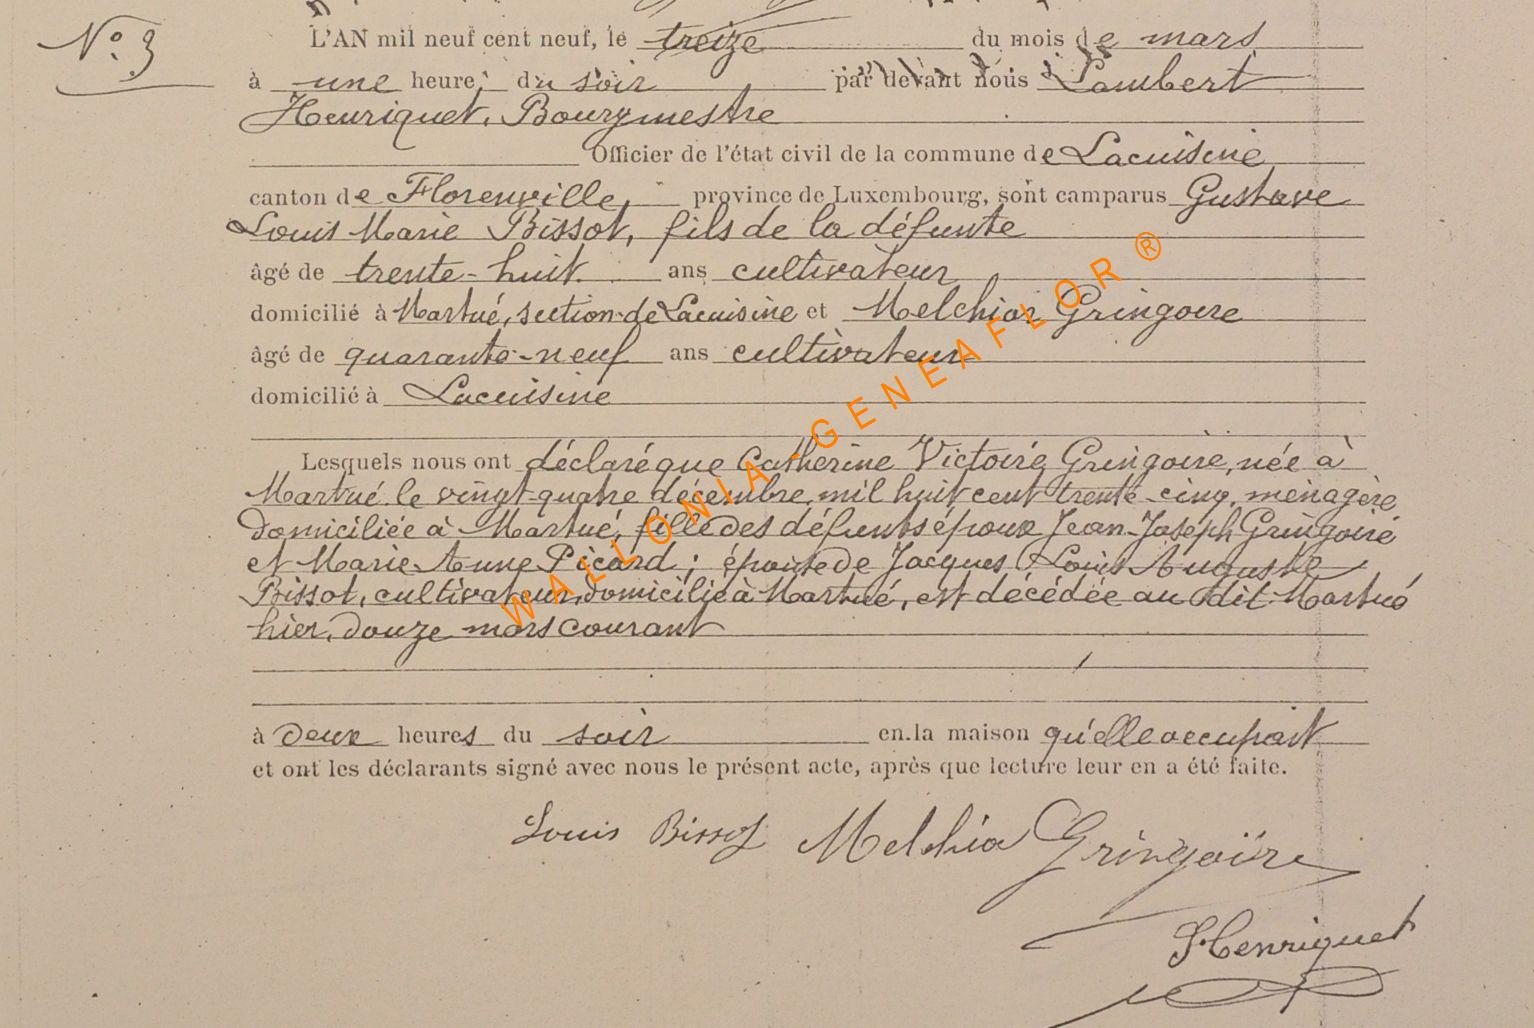 N° 3
L'AN mil neuf cent neuf, le treize du mois de mars
à une heure, du soir par devant nous Lambert
Henriquet, Bourgmestre
Officier de l'état civil de la commune de Lacuisine
canton de Florenville, province de Luxembourg, sont comparus Gustave
Louis Marie Bissot, fils de la défunte
âgé de trente-huit ans cultivateur
domicilié à Martué, section de Lacuisine et Melchior Gringoire
âgé de quarante-neuf ans cultivateur
domicilié à Lacuisine
Lesquels nous ont déclaré que Catherine Victoire Gringoire, née à
Martué le vingt-quatre décembre mil huit cent trente-cinq, ménagère
domiciliée à Martué, fille des défunts époux Jean-Joseph Gringoire
et Marie-Anne Picard ; épouse de Jacques Louis Auguste
Bissot, cultivateur, domicilié à Martué, est décédée au dit Martué
hier, douze mars courant
à deux heures du soir en la maison qu'elle occupait
et ont les déclarants signé avec nous le présent acte, après que lecture leur en a été faite.
Louis Bissot Melchior Gringoire
Henriquet
WALLONIA-GENEAFLOR ®